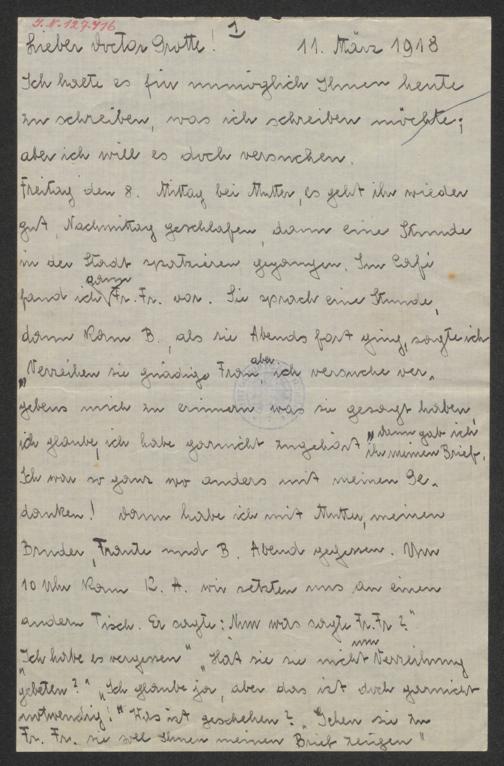 J.N. 127.416
1
Lieber Doctor Grotte! 11. März 1918
Ich halte es für unmöglich Ihnen heute
zu schreiben, was ich schreiben möchte;
aber ich will es doch versuchen.
Freitag den 8. Mittag bei Mutter, es geht ihr wieder
gut, Nachmittag geschlafen, dann eine Stunde
in der Stadt spatzieren gegangen. Im Café
dann
fand ich Fr. Fr. vor. Sie sprach eine Stunde,
dann kam B., als sie Abends fort ging, sagte ich
„Verzeihen sie gnädige Frau, aber ich versuche ver-
gebens mich zu erinnern was sie gesagt haben,
ich glaube, ich habe garnicht zugehört" dann gab ich
ihr meinen Brief.
Ich war so ganz wo anders mit meinen Ge-
danken! Dann habe ich mit Mutter, meinem
Bruder, Trante und B. Abend gegessen. Um
10 Uhr kam K. A. wir setzten uns an einen
andern Tisch. Er sagte: „Nun was sagte Fr. Fr?"
„Ich habe es vergessen" „Hat sie sie nicht um Verzeihung
gebeten?" „Ich glaube ja, aber das ist doch garnicht
notwendig!" „Was ist geschehen?" „Gehen sie zu
Fr. Fr. sie soll Ihnen meinen Brief zeigen"